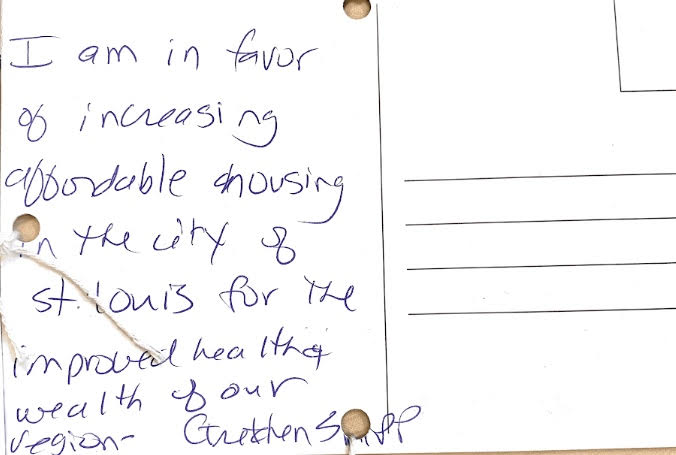 I am in favor
of increasing
affordable housing
in the city of
St. Louis for the
improved health &
wealth of our
region-
Gretchen